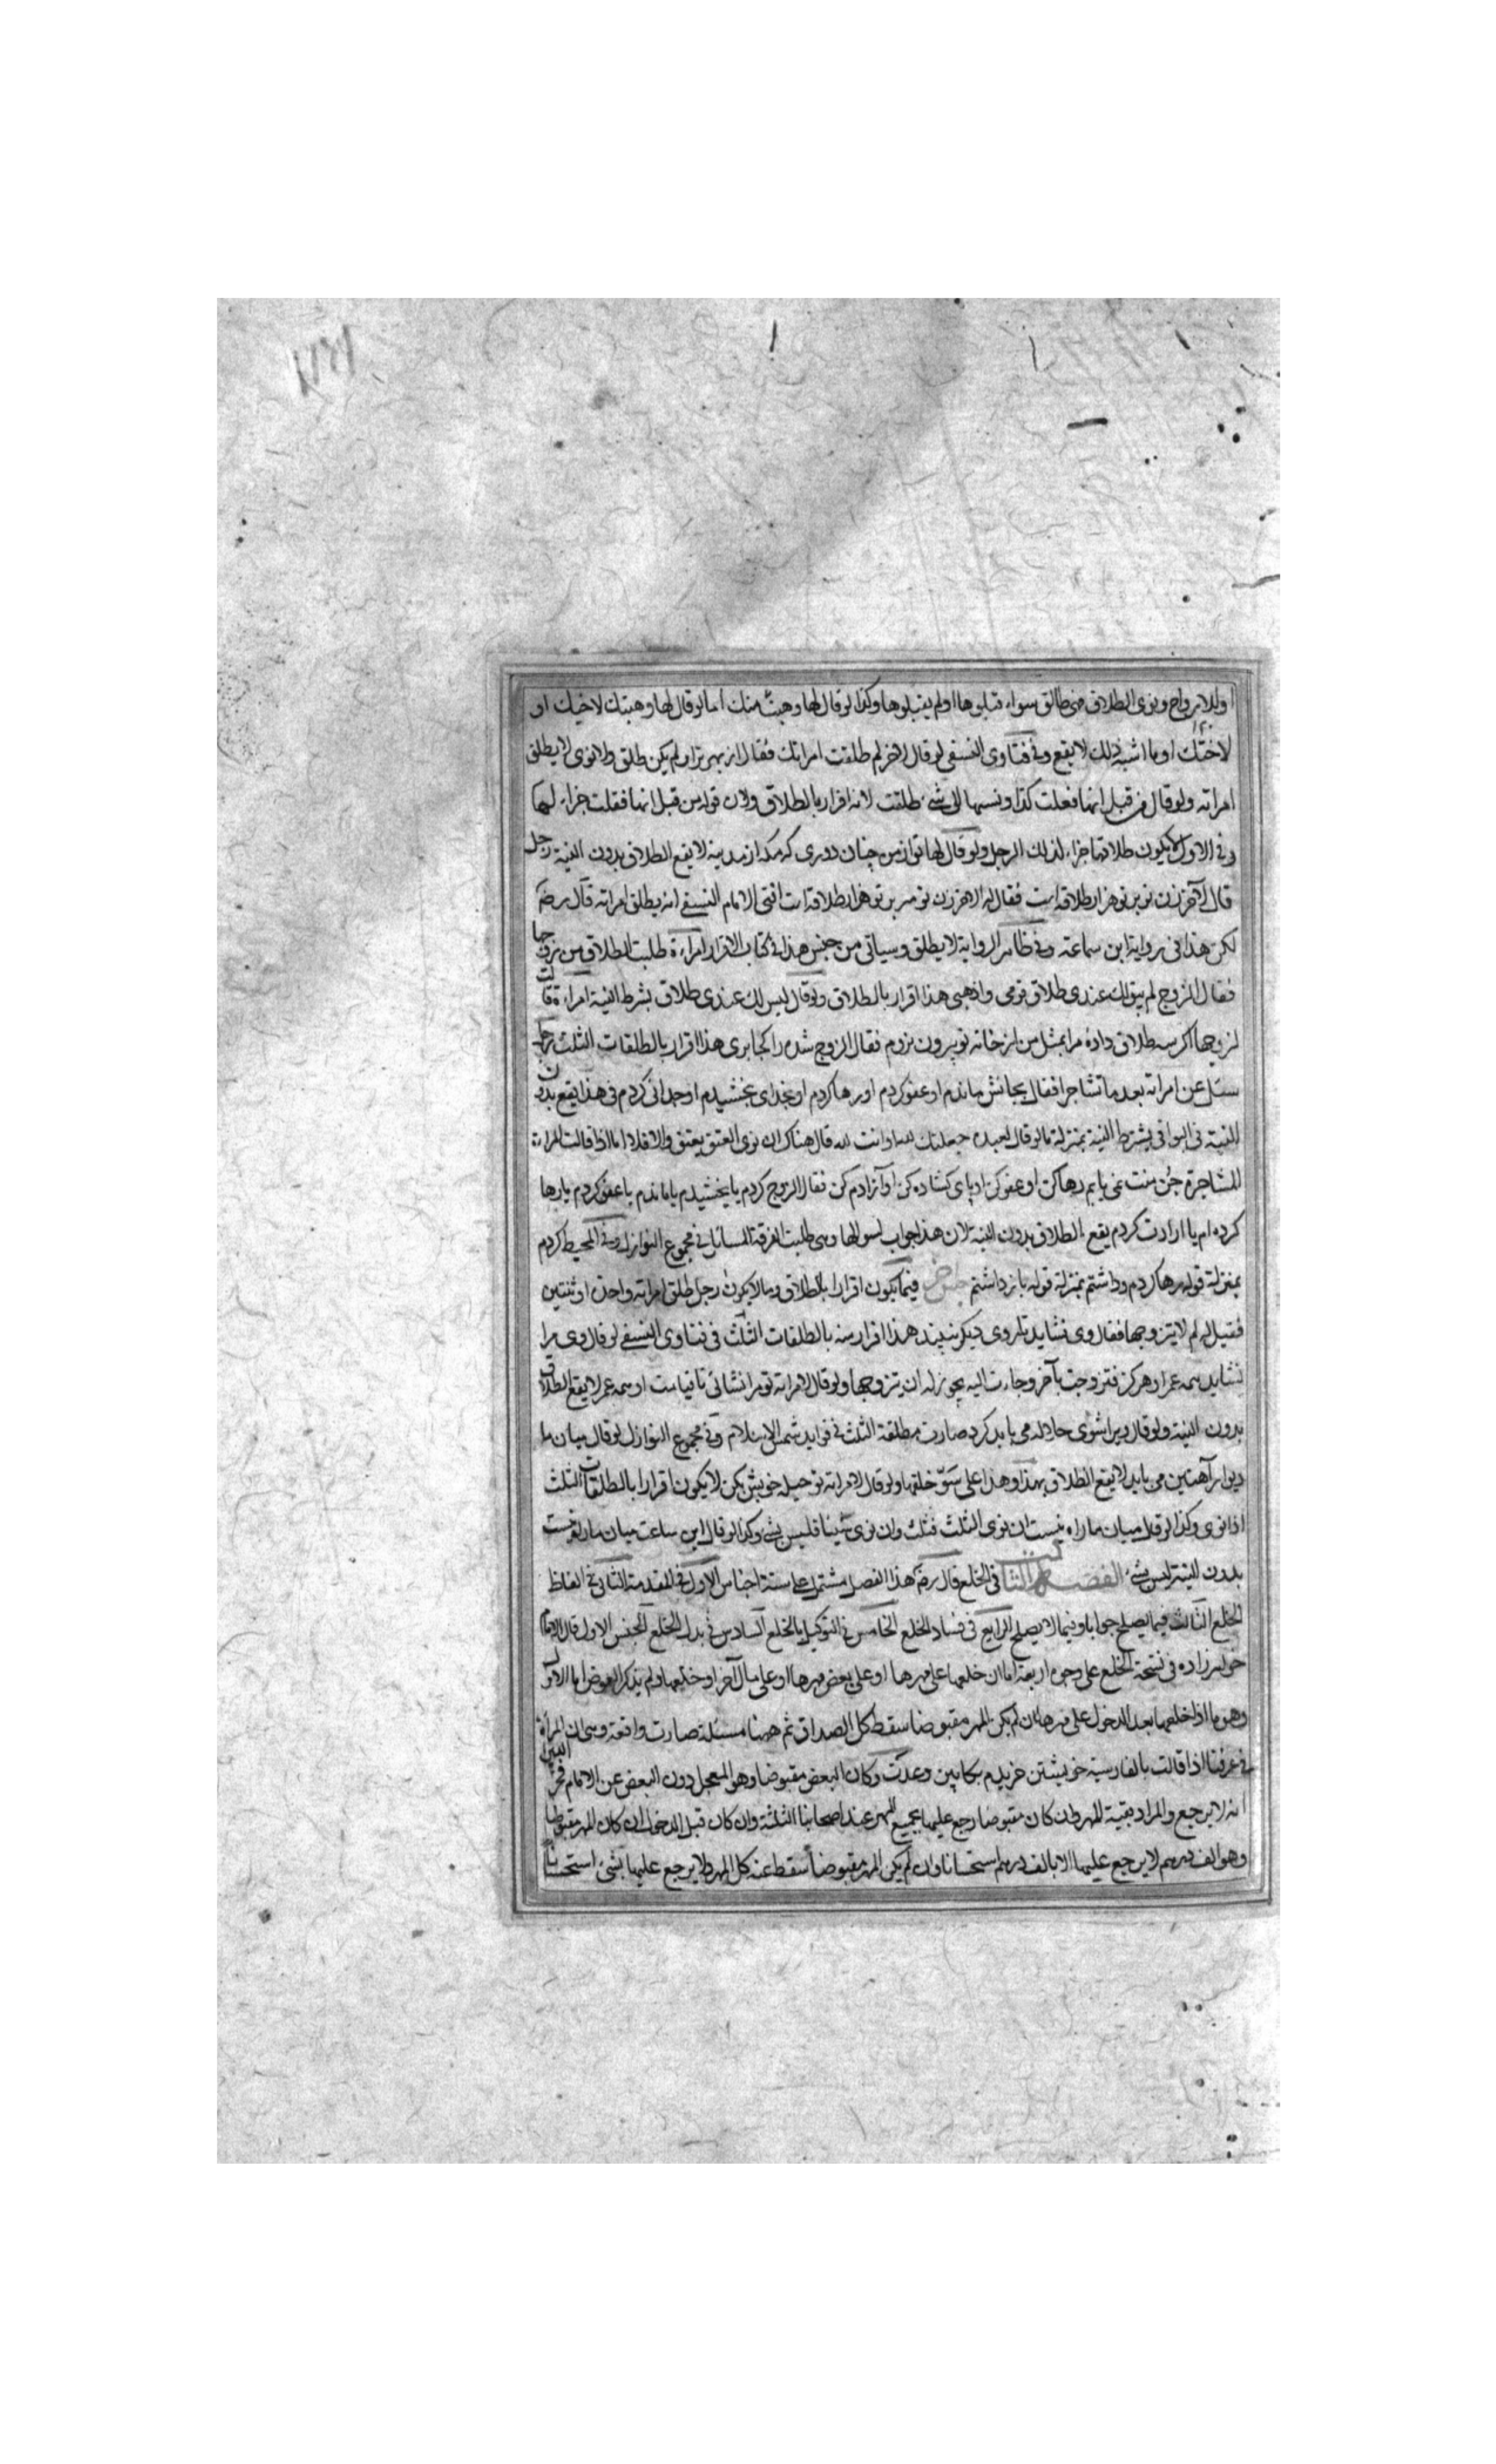 او للازواج ونوى الطلاق فهى طالق سواء قبلوها او لم يقبلوها وكذا لو قال لها وهبت منك اما لو قال لها وهبتك لاخيك او
لاختك او ما اشبه ذلك لا يقع وفى فتاوى النسفى لو قال لاخر لم طلقت امراتك فقال از بهر ترا ولم يكن طلق ولا نوى لا يطلق
امراته ولو قال من قبل انها فعلت كذا ونسبها الى شئ طلقت لانه اقرار بالطلاق ولان قوله من قبل انها فعلت جزاء لها
وفى الاول لا يكون طلاقها جزاء لذلك الرجل ولو قال لها تو از من چنان دورى كه مكه از مدينة لا يقع الطلاق بدون النية رجل
قال لآخر زن تو بر تو هزار طلاقه است فقال له الاخر زن تو نيز بر تو هزار طلاقه است افتى الامام النسفى انه يطلق امراته قال رضه
لكن هذا فى رواية ابن سماعة وفى ظاهر الرواية لا يطلق وسياتى من جنس هذا فى كتاب الاقرار امراءة طلبت الطلاق من زوجها
فقال الزوج لم يبق لك عندى طلاق قومى واذهبى هذا اقرار بالطلاق ولو قال ليس لك عندى طلاق بشرط النية امراءة قالت
لزوجها اكر سه طلاق داده مرا بمثل من از خانه تو بيرون نروم فقال الزوج شدم را كجا برى هذا اقرار بالطلقات الثلث رجل
سئل عن امراته بعد ما تشاجرا فقال بجانش ماندم او عفو كردم او رها كردم او بخداى بخشيدم او جدائى كردم فى هذا يقع بدون
النية فى البواقى يشترط النية بمنزلة ما لو قال لعبده جعلتك لله او انت لله قال هناك ان نوى العتق يعتق والا فلا اما اذا قالت المراءة
للمشاجرة چون منت نمى بايم رها كن او عفو كن او پاى كشاده كن او آزادم كن فقال الزوج كردم يا بخشيدم يا ماندم يا عفو كردم يا رها
كرده ام يا ارادت كردم يقع الطلاق بدون النية لان هذا جواب لسوالها وهى طلبت الفرقة المسائل فى مجموع النوازل وفى المحيط كردم
بمنزلة قوله رها كردم وداشتم بمنزلة قوله باز داشتم جنس آخر فيما يكون اقرارا بالطلاق وما لا يكون رجل طلق امراته واحدة او ثنتين
فقيل له لم لا يتزوجها فقال وى نشايد تا روى ديكر نبيند هذا اقرار منه بالطلقات الثلث فى فتاوى النسفى لو قال وى مرا
نشايد همه عمر او هركز فتزوجت بآخر وجاءت اليه يجوز له ان يتزوجها ولو قال لامراته تو مرا نشائى تا قيامت او همه عمر لا يقع الطلاق
بدون النية ولو قال ويرا شوى حلاله مى بايد كرد صارت مطلقة الثلث فى فوايد شمس الاسلام وفى مجموع النوازل لو قال ميان ما
ديوار آهنين مى بايد لا يقع الطلاق بهذا وهذا على خلقها ولو قال لامراته تو حيله خويش بكن لا يكون اقرارا بالطلقات الثلث
اذا نوى وكذا لو قال ميان ما راه نيست ان نوى الثلث فثلث وان نوى شيئا فليس بشئ وكذا لو قال اين ساعت ميان ما راه نيست
بدون النية ليس بشئ الفصل الثالث فى الخلع قال رضه هذا الفصل مشتمل على ستة اجناس الاول فى المقدمة الثانى فى الفاظ
الخلع الثالث فيما يصلح جوابا وفيما لا يصلح الرابع فى فساد الخلع الخامس فى التوكيل بالخلع السادس فى بدل الخلع الجنس الاول قال الامام
خواهر زاده فى نسخة الخلع على وجوه اربعة اما ان خلعها على مهرها او على بعض مهرها او على مال آخر او خلعها ولم يذكر العوض اما الاول
وهو ما اذا خلعها بعد الدخول على مهرها ان لم يكن المهر مقبوضا سقط كل الصداق ثم ههنا مسئلة صارت واقعة وهى ان المرأة
فى عرفنا اذا قالت بالفارسية خويشتن خريدم بكابين وعدت وكان البعض مقبوضا وهو المعجل دون البعض عن الامام فخر الدين
انه لا يرجع والمراد بقية المهر وان كان مقبوضا رجع عليها بجميع المهر عند اصحابنا الثلثة وان كان قبل الدخول ان كان المهر مقبوضا
وهو الف درهم لا يرجع عليها الا بالف درهم استحسانا وان لم يكن المهر مقبوضا سقط عنه كل المهر ولا يرجع عليها بشئ استحسانا